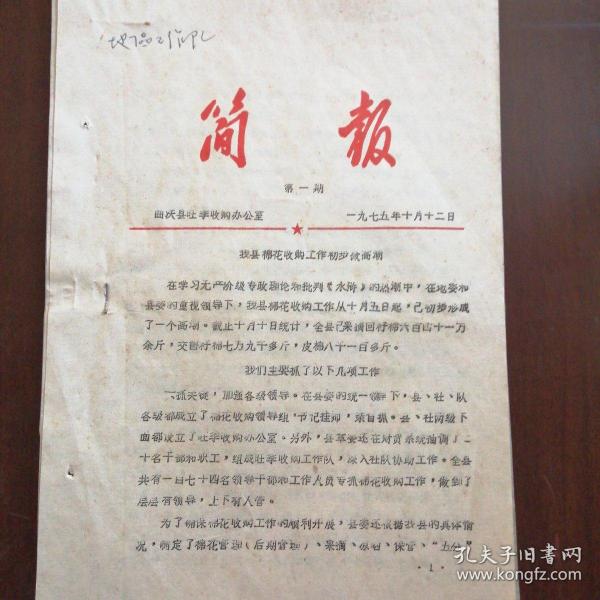 简报
第一期
曲沃县旺季收购办公室 一九七五年十月十二日
我县棉花收购工作初步掀高潮
在学习无产阶级专政理论和批判《水浒》的热潮中，在地委和
县委的重视领导下，我县棉花收购工作从十月五日起，已初步形成
了一个高潮。截止十月十日统计，全县已采摘回籽棉六百四十一万
余斤，交售籽棉七万九千多斤，皮棉八十一百多斤。
我们主要抓了以下几项工作
一抓关键，加强各级领导。在县委的统一领导下，县、社、队
各级都成立了棉花收购领导组，书记挂帅，亲自抓。县、社两级下
面都成立了旺季收购办公室。另外，县革委还在财贸系统抽调了二
十名干部和职工，组成旺季收购工作队，深入社队协助工作。全县
共有一百七十四名领导干部和工作人员专抓棉花收购工作，做到了
层层有领导，上下有人管。
为了确保棉花收购工作的顺利开展，县委还根据我县的具体情
况，制定了棉花管理（后期管理）、采摘、晾晒、保管、"五分"
·1·
孔夫子旧书网
www.kongfz.com